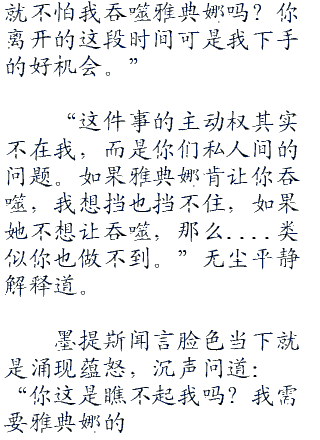 就不怕我吞噬雅典娜吗？你
离开的这段时间可是我下手
的好机会。”
“这件事的主动权其实
不在我，而是你们私人间的
问题。如果雅典娜肯让你吞
噬，我想挡也挡不住，如果
她不想让吞噬，那么....类
似你也做不到。”无尘平静
解释道。
墨提斯闻言脸色当下就
是涌现蕴怒，沉声问道：
“你这是瞧不起我吗？我需
要雅典娜的